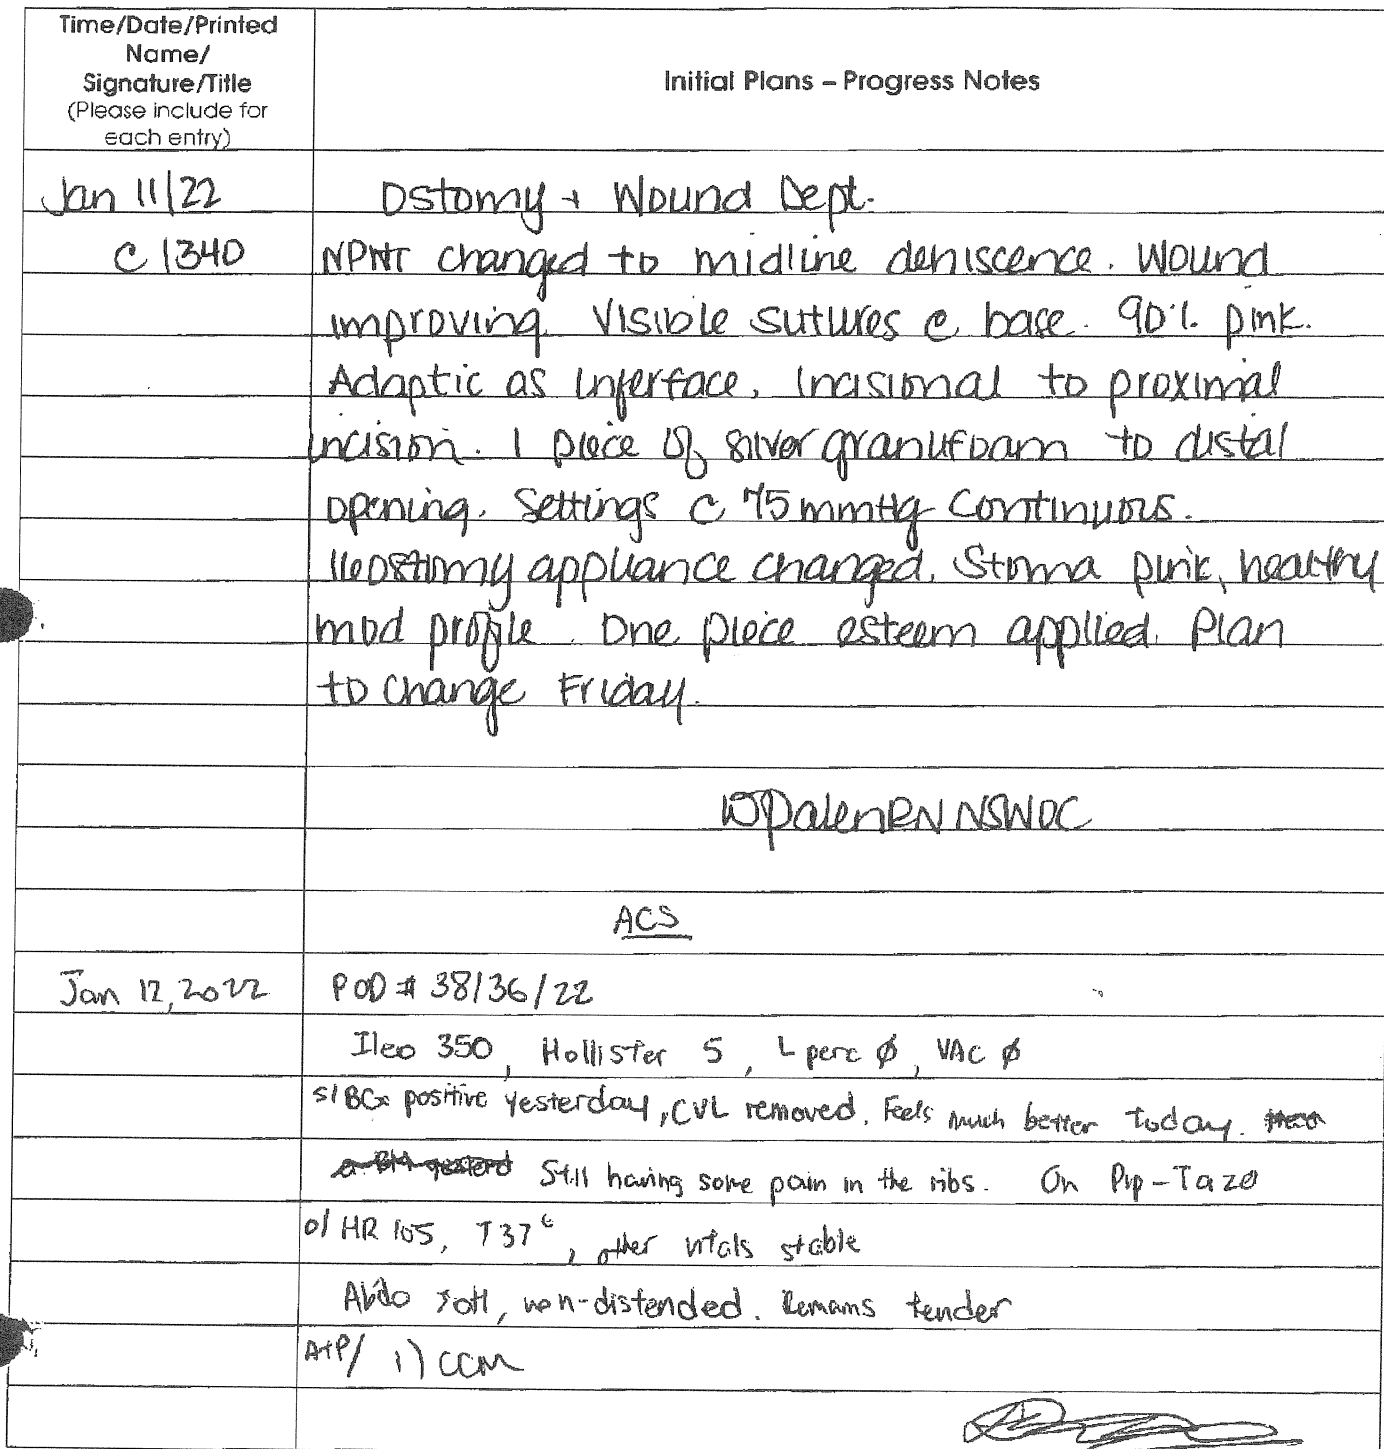 Time/Date/Printed
Name/
Signature/Title
(Please include for
each entry)
Initial Plans – Progress Notes
Jan 11/22 Ostomy + Wound Dept.
@ 1340 NPWT changed to midline dehiscence. Wound
improving. Visible sutures @ base. 90% pink.
Adaptic as interface. Incisional to proximal
incision. 1 piece of silver granufoam to distal
opening. Settings @ 75mmHg Continuous.
Ileostomy appliance changed. Stoma pink, healthy
mod profile. One piece esteem applied. Plan
to change Friday.
RN NSWOC
ACS
Jan 12, 2022 POD # 38/36/22
Ileo 350, Hollister 5, L perc ∅, VAC ∅
S/ BCx positive yesterday, CVL removed. Feels much better today.
Still having some pain in the ribs. On Pip-Tazo
O/ HR 105, T37⁶, other vitals stable
Abdo soft, non-distended. Remains tender
A+P/ 1) CCM